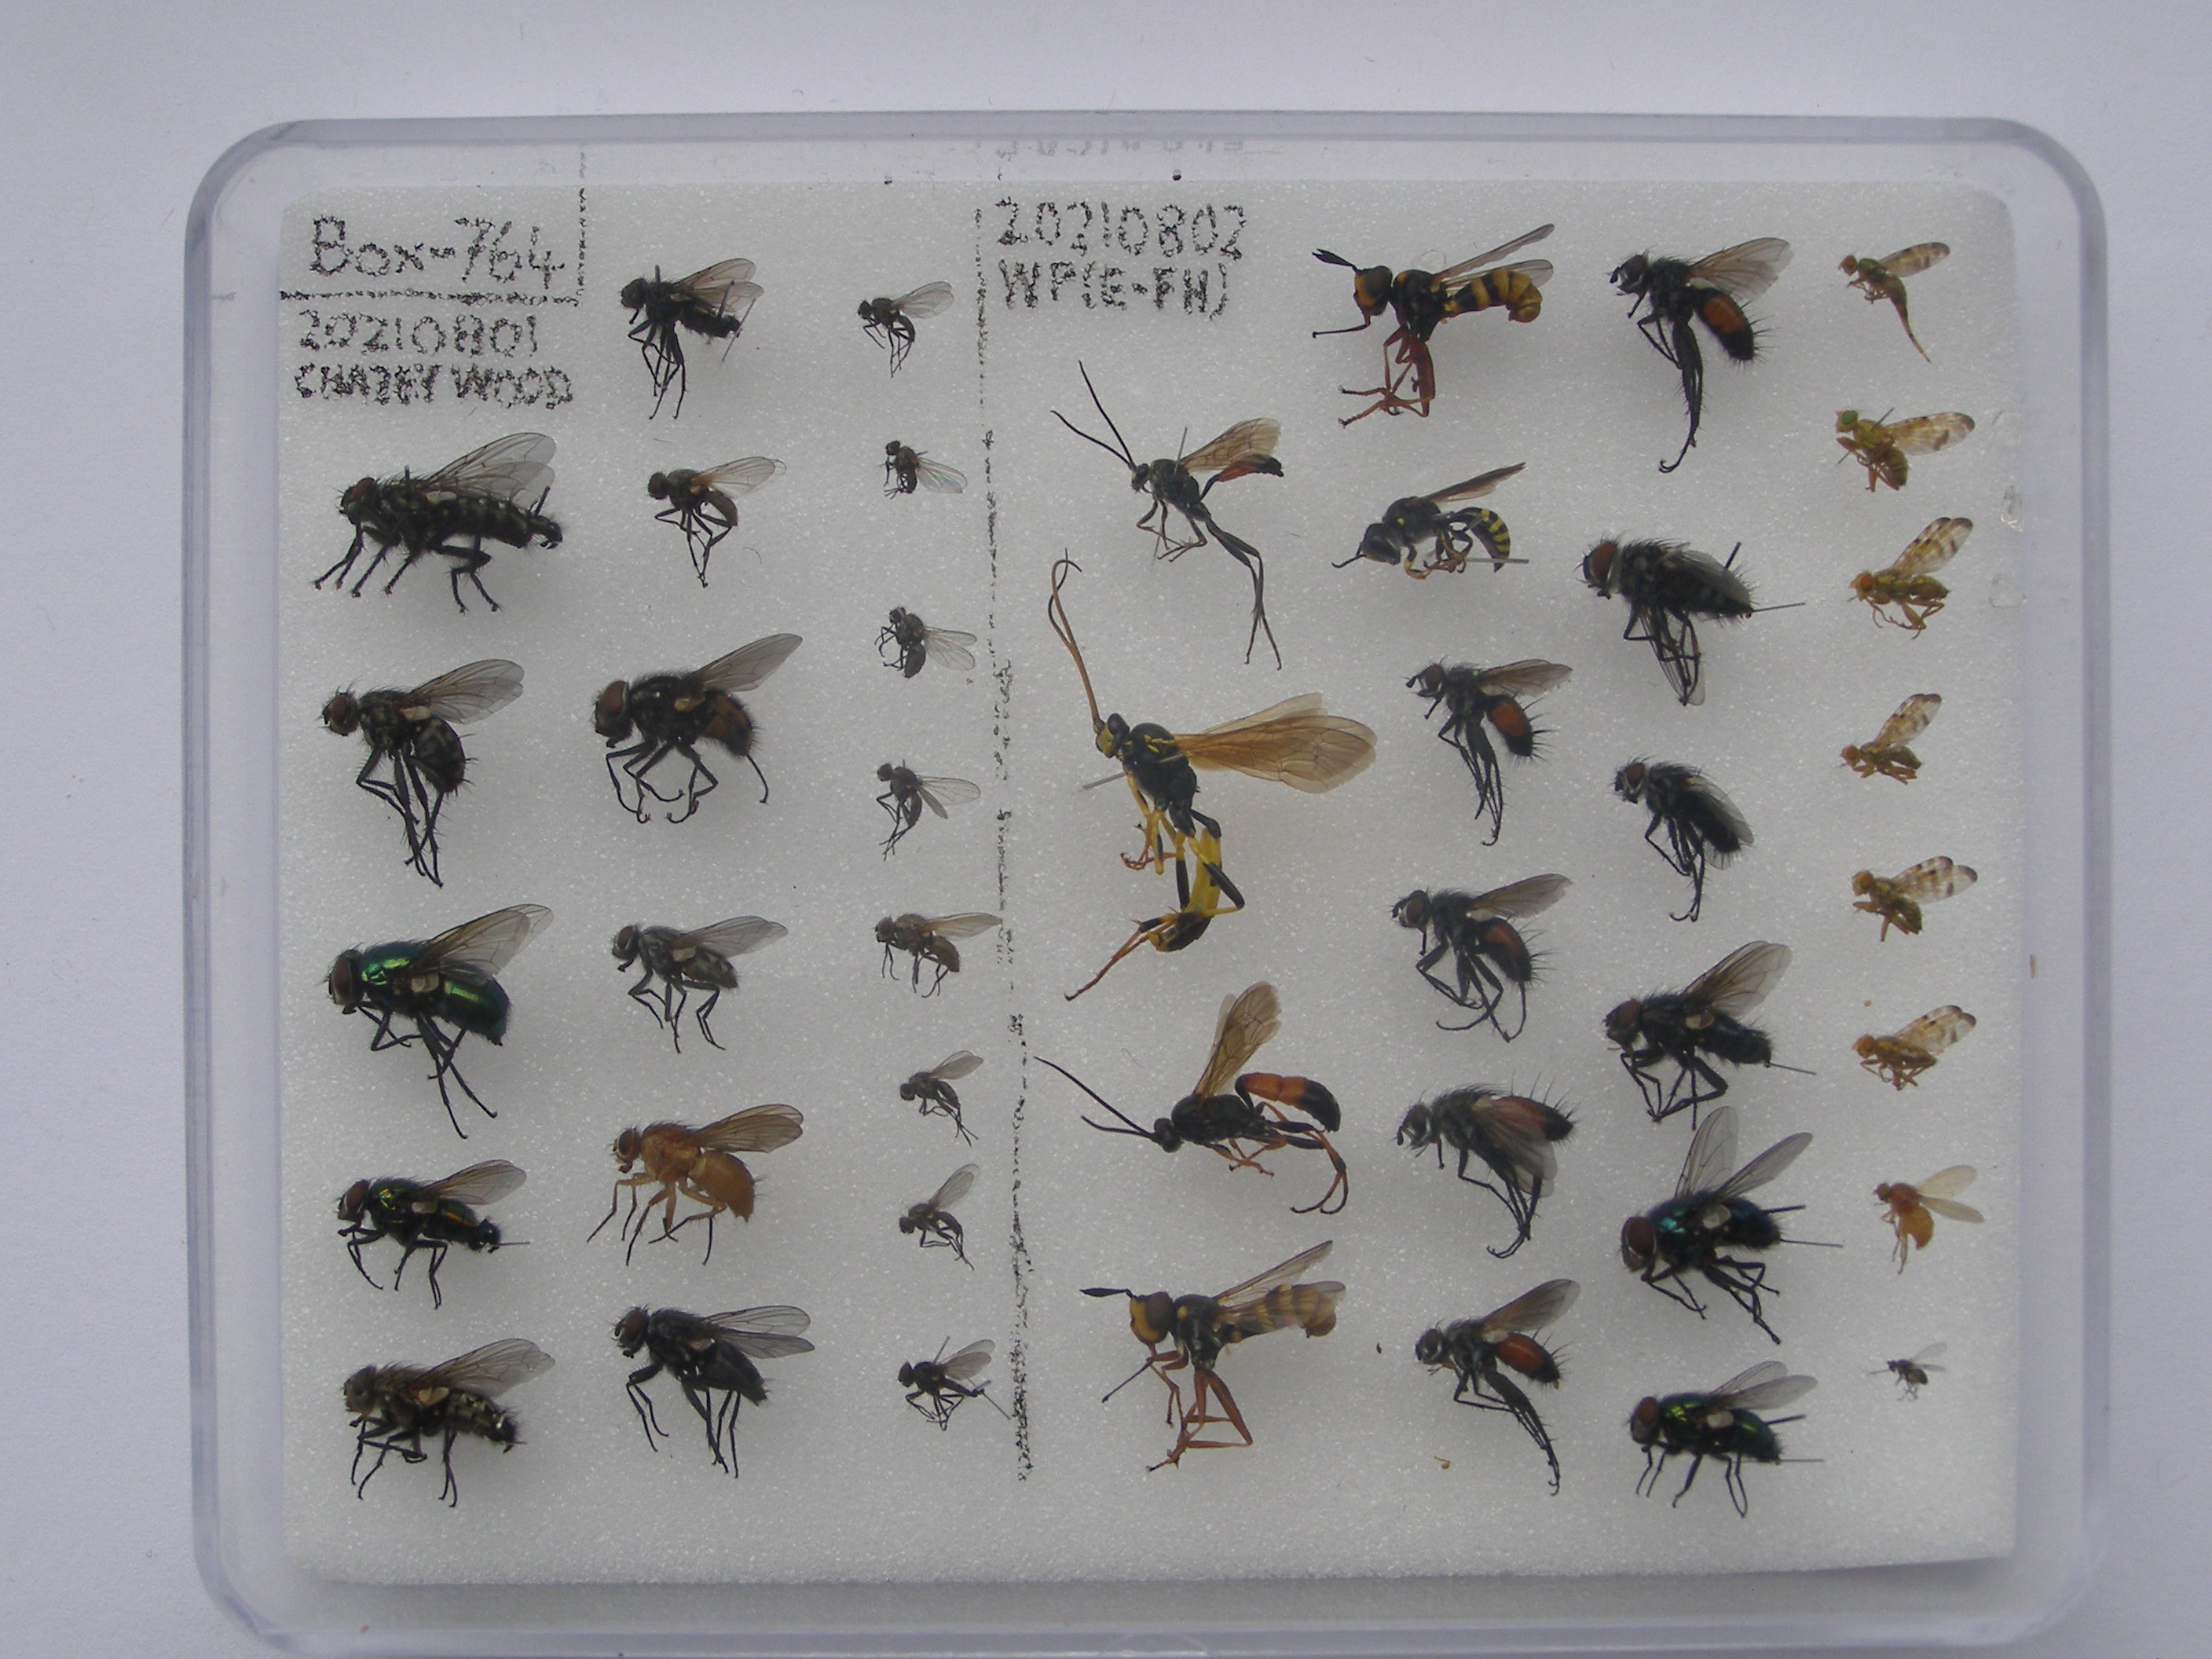 Box-764
20210801
CHADEY WOOD
20210802
WP(E-FH)